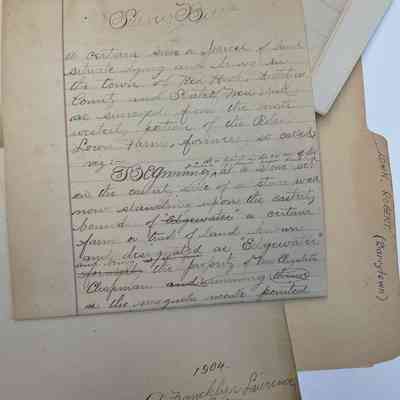 a certain piece or parcel of land
situate lying and being in
the town of Red Hook, Dutchess
County and State of New York
as surveyed from the most
westerly portion of the
Farm, former, so called
viz:
Beginning at a stone set
on the east side of a stone wall
now standing upon the easterly
bound of Edgewater a certain
farm or tract of land known
and designated as "Edgewater"
the property of
Chapman and running thence
as the magnetic needle pointed
JOHN ROBERT (Barrytown)
1904.